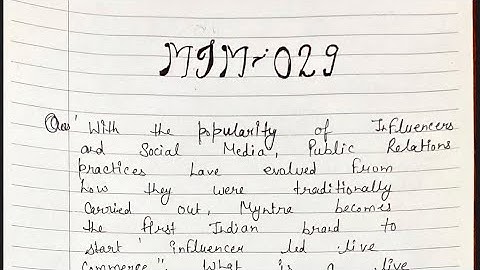 MJM-029
Ques' With the popularity of Influencers
and Social Media, Public Relations
practices have evolved from
how they were traditionally
carried out, Myntra becomes
the first Indian braid to
start 'influencer led live
Commerce". What is a live